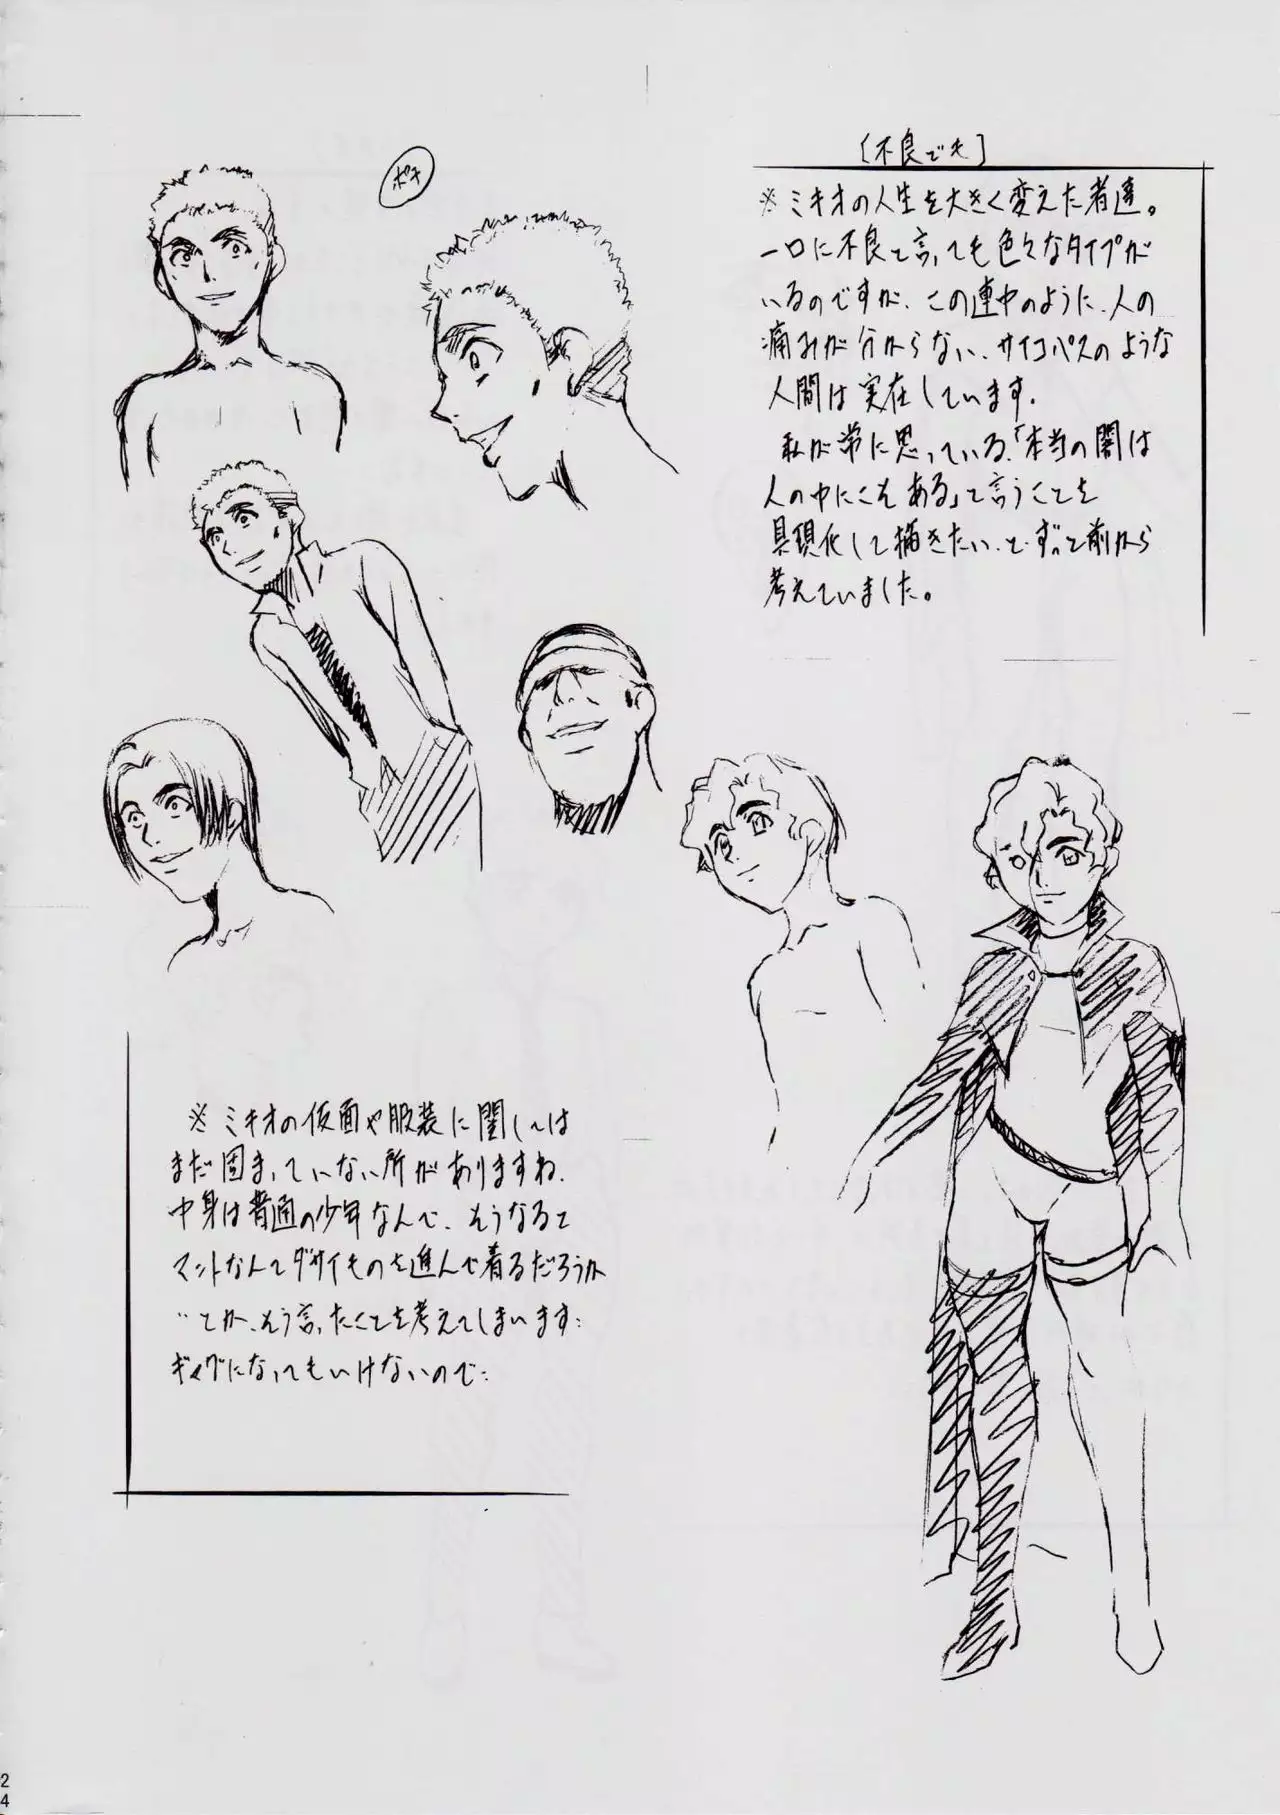 [不良ども]
※ミキオの人生を大きく変えた者達。
一口に不良と言っても色々なタイプが
いるのですが、この連中のように、人の
痛みが分からない、サイコパスのような
人間は実在しています。
私が常に思っている、「本当の闇は
人の中にこそある」と言うことを
具現化して描きたい、と、ずっと前から
考えていました。
ボキ
※ミキオの仮面や服装に関しては
まだ固まっていない所がありますね。
中身は普通の少年なんで、そうなると
マントなんてダサイものを進んで着るだろうか
…とか、そう言ったことを考えてしまいます…
ギャグになってもいけないので…
24